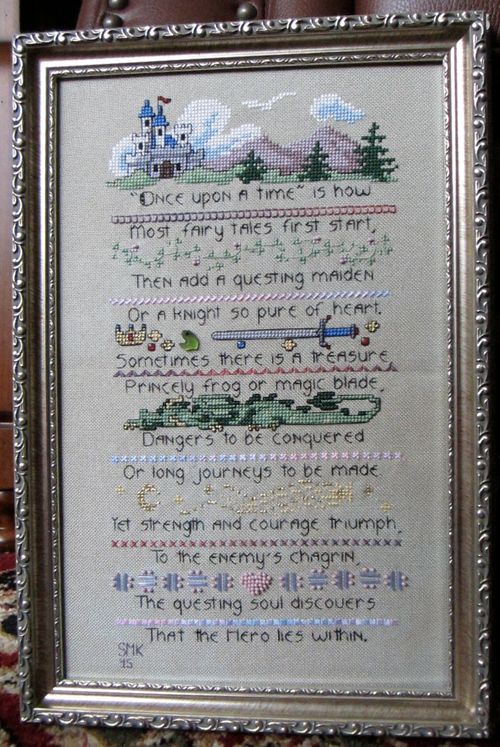 "Once upon a time" is how
Most fairy tales first start,
Then add a questing maiden
Or a knight so pure of heart.
Sometimes there is a treasure
Princely frog or magic blade,
Dangers to be conquered
Or long journeys to be made
Yet strength and courage triumph,
To the enemy's chagrin,
The questing soul discovers
That the Hero lies within.
SMK
'15